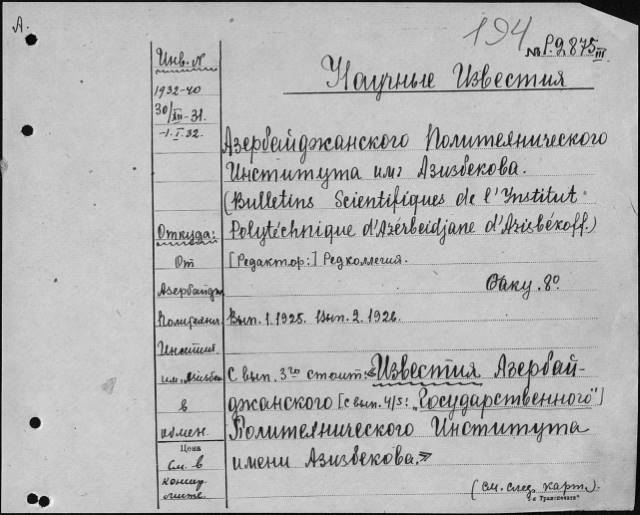 А.
194
№ Р.9875 III
Научные Известия
Инв. N
1932-40
30/XII-31.
-1.I.32.
Азербайджанского Политехнического
Института им. Азизбекова.
(Bulletins Scientifiques de l'Institut
Polytéchnique d'Azérbeidjane d'Azisbékoff.)
Откуда:
От
Азербайдж
Политехн.
Инстит.
им. Азизбек
в
обмен.
Цена
См. в
комп
лекте
[Редактор:] Редколлегия.
Баку. 8º
Вып. 1. 1925. Вып. 2. 1926.
С вып. 3го стоит: «Известия Азербай-
джанского [с вып. 4/5: „Государственного"]
Политехнического Института
имени Азизбекова.»
(см. след. карт.)